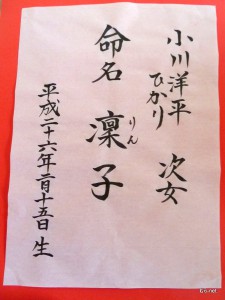 小川洋平
ひかり 次女
命名 凛子
りん
平成二十六年二月十五日 生